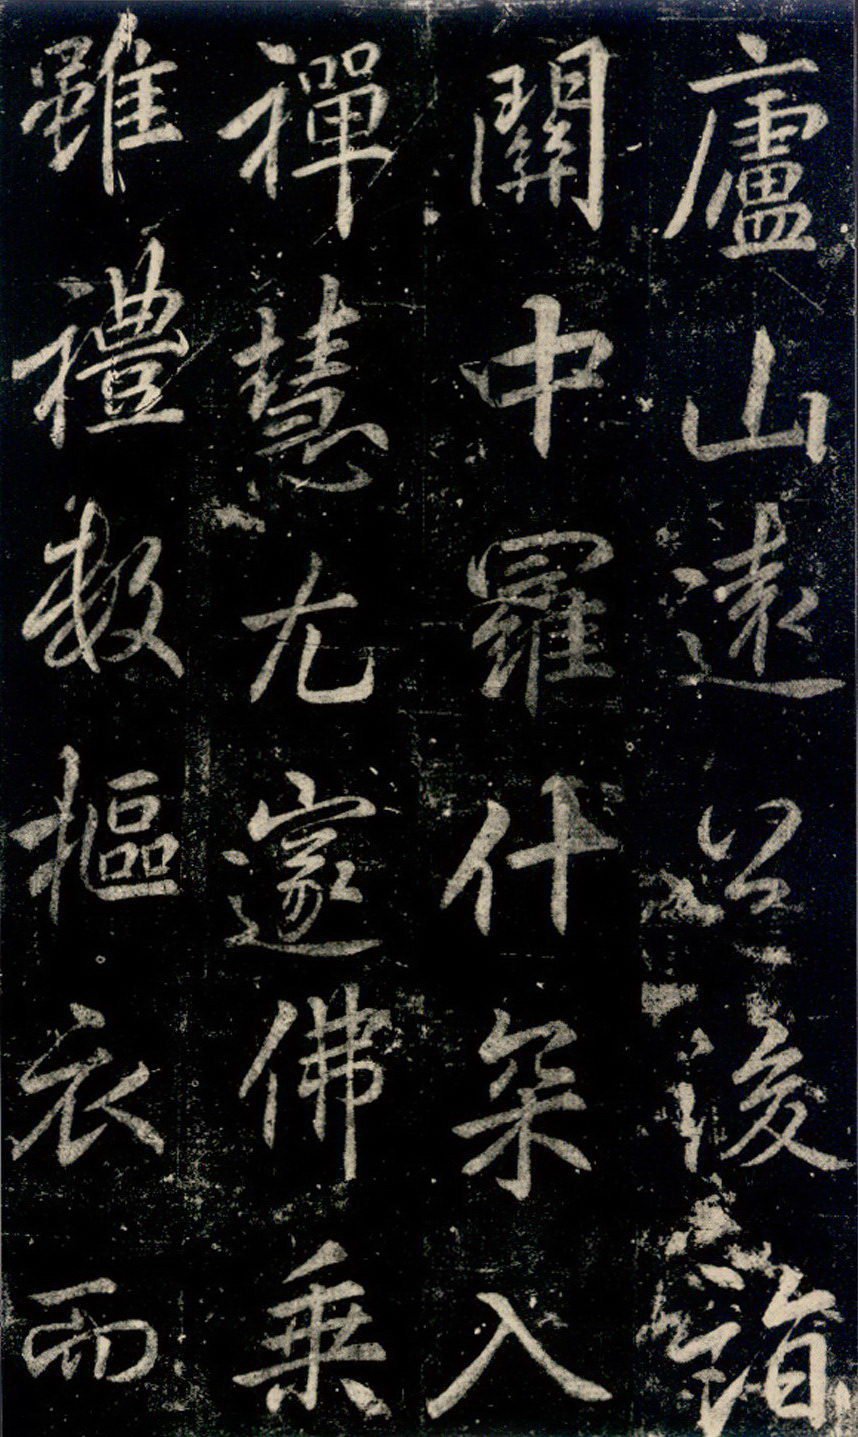 廬山遠公後詣
關中羅什罙入
禪慧尤邃佛乘
雖禮數摳衣而